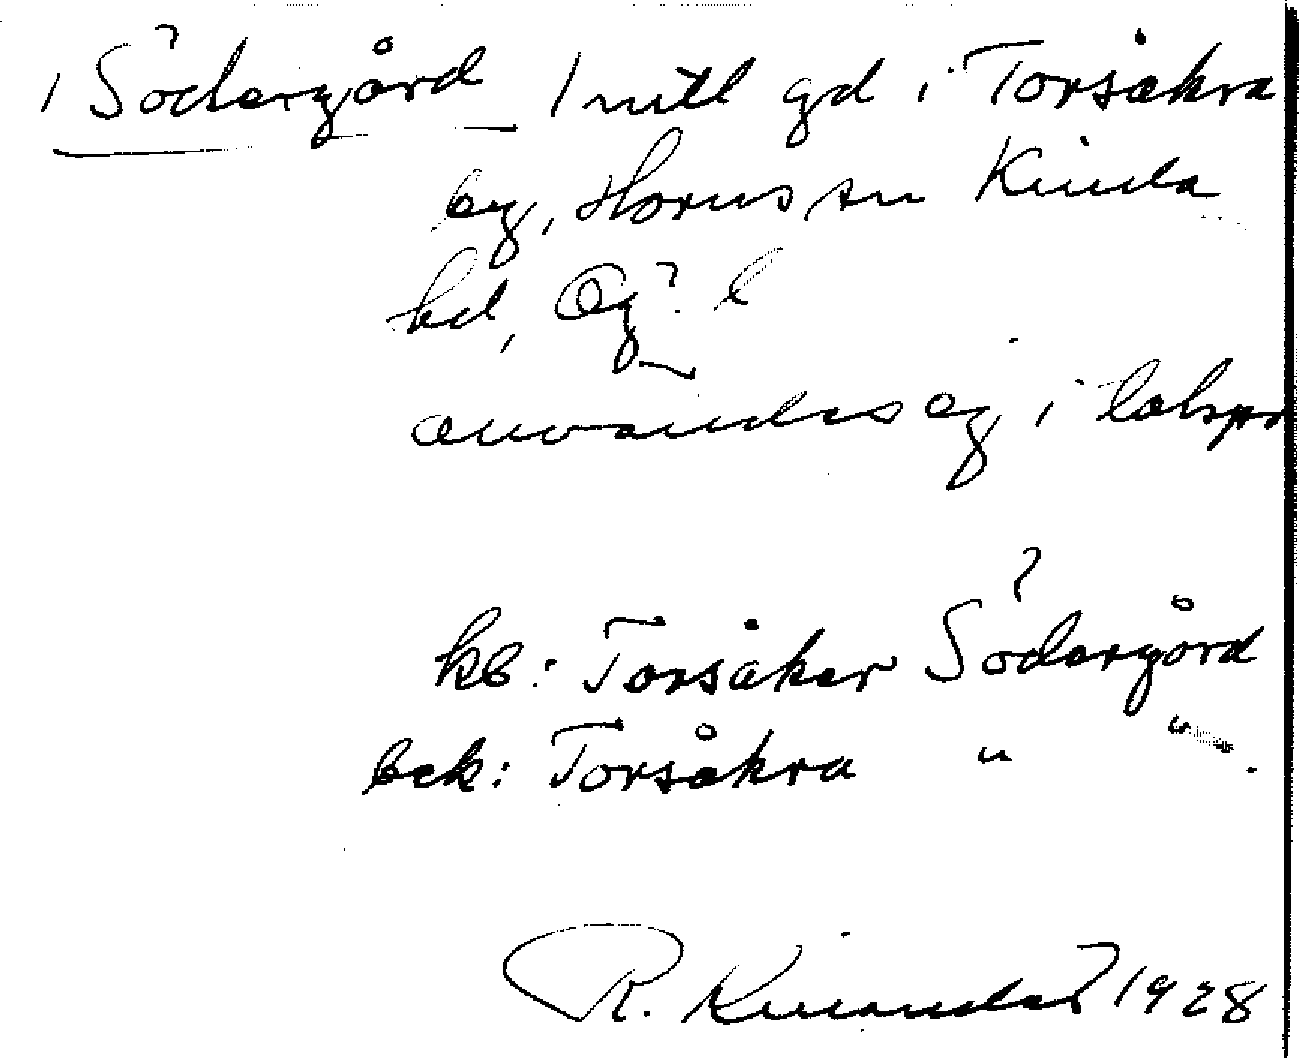 1 Södergård 1 mtl gd i Torsåkra
by, Horns sn Kinda
hd, Ög. l
användes ej i talspr
kb: Torsåker Södergård
bek: Torsåkra " "
R. Kinander 1928